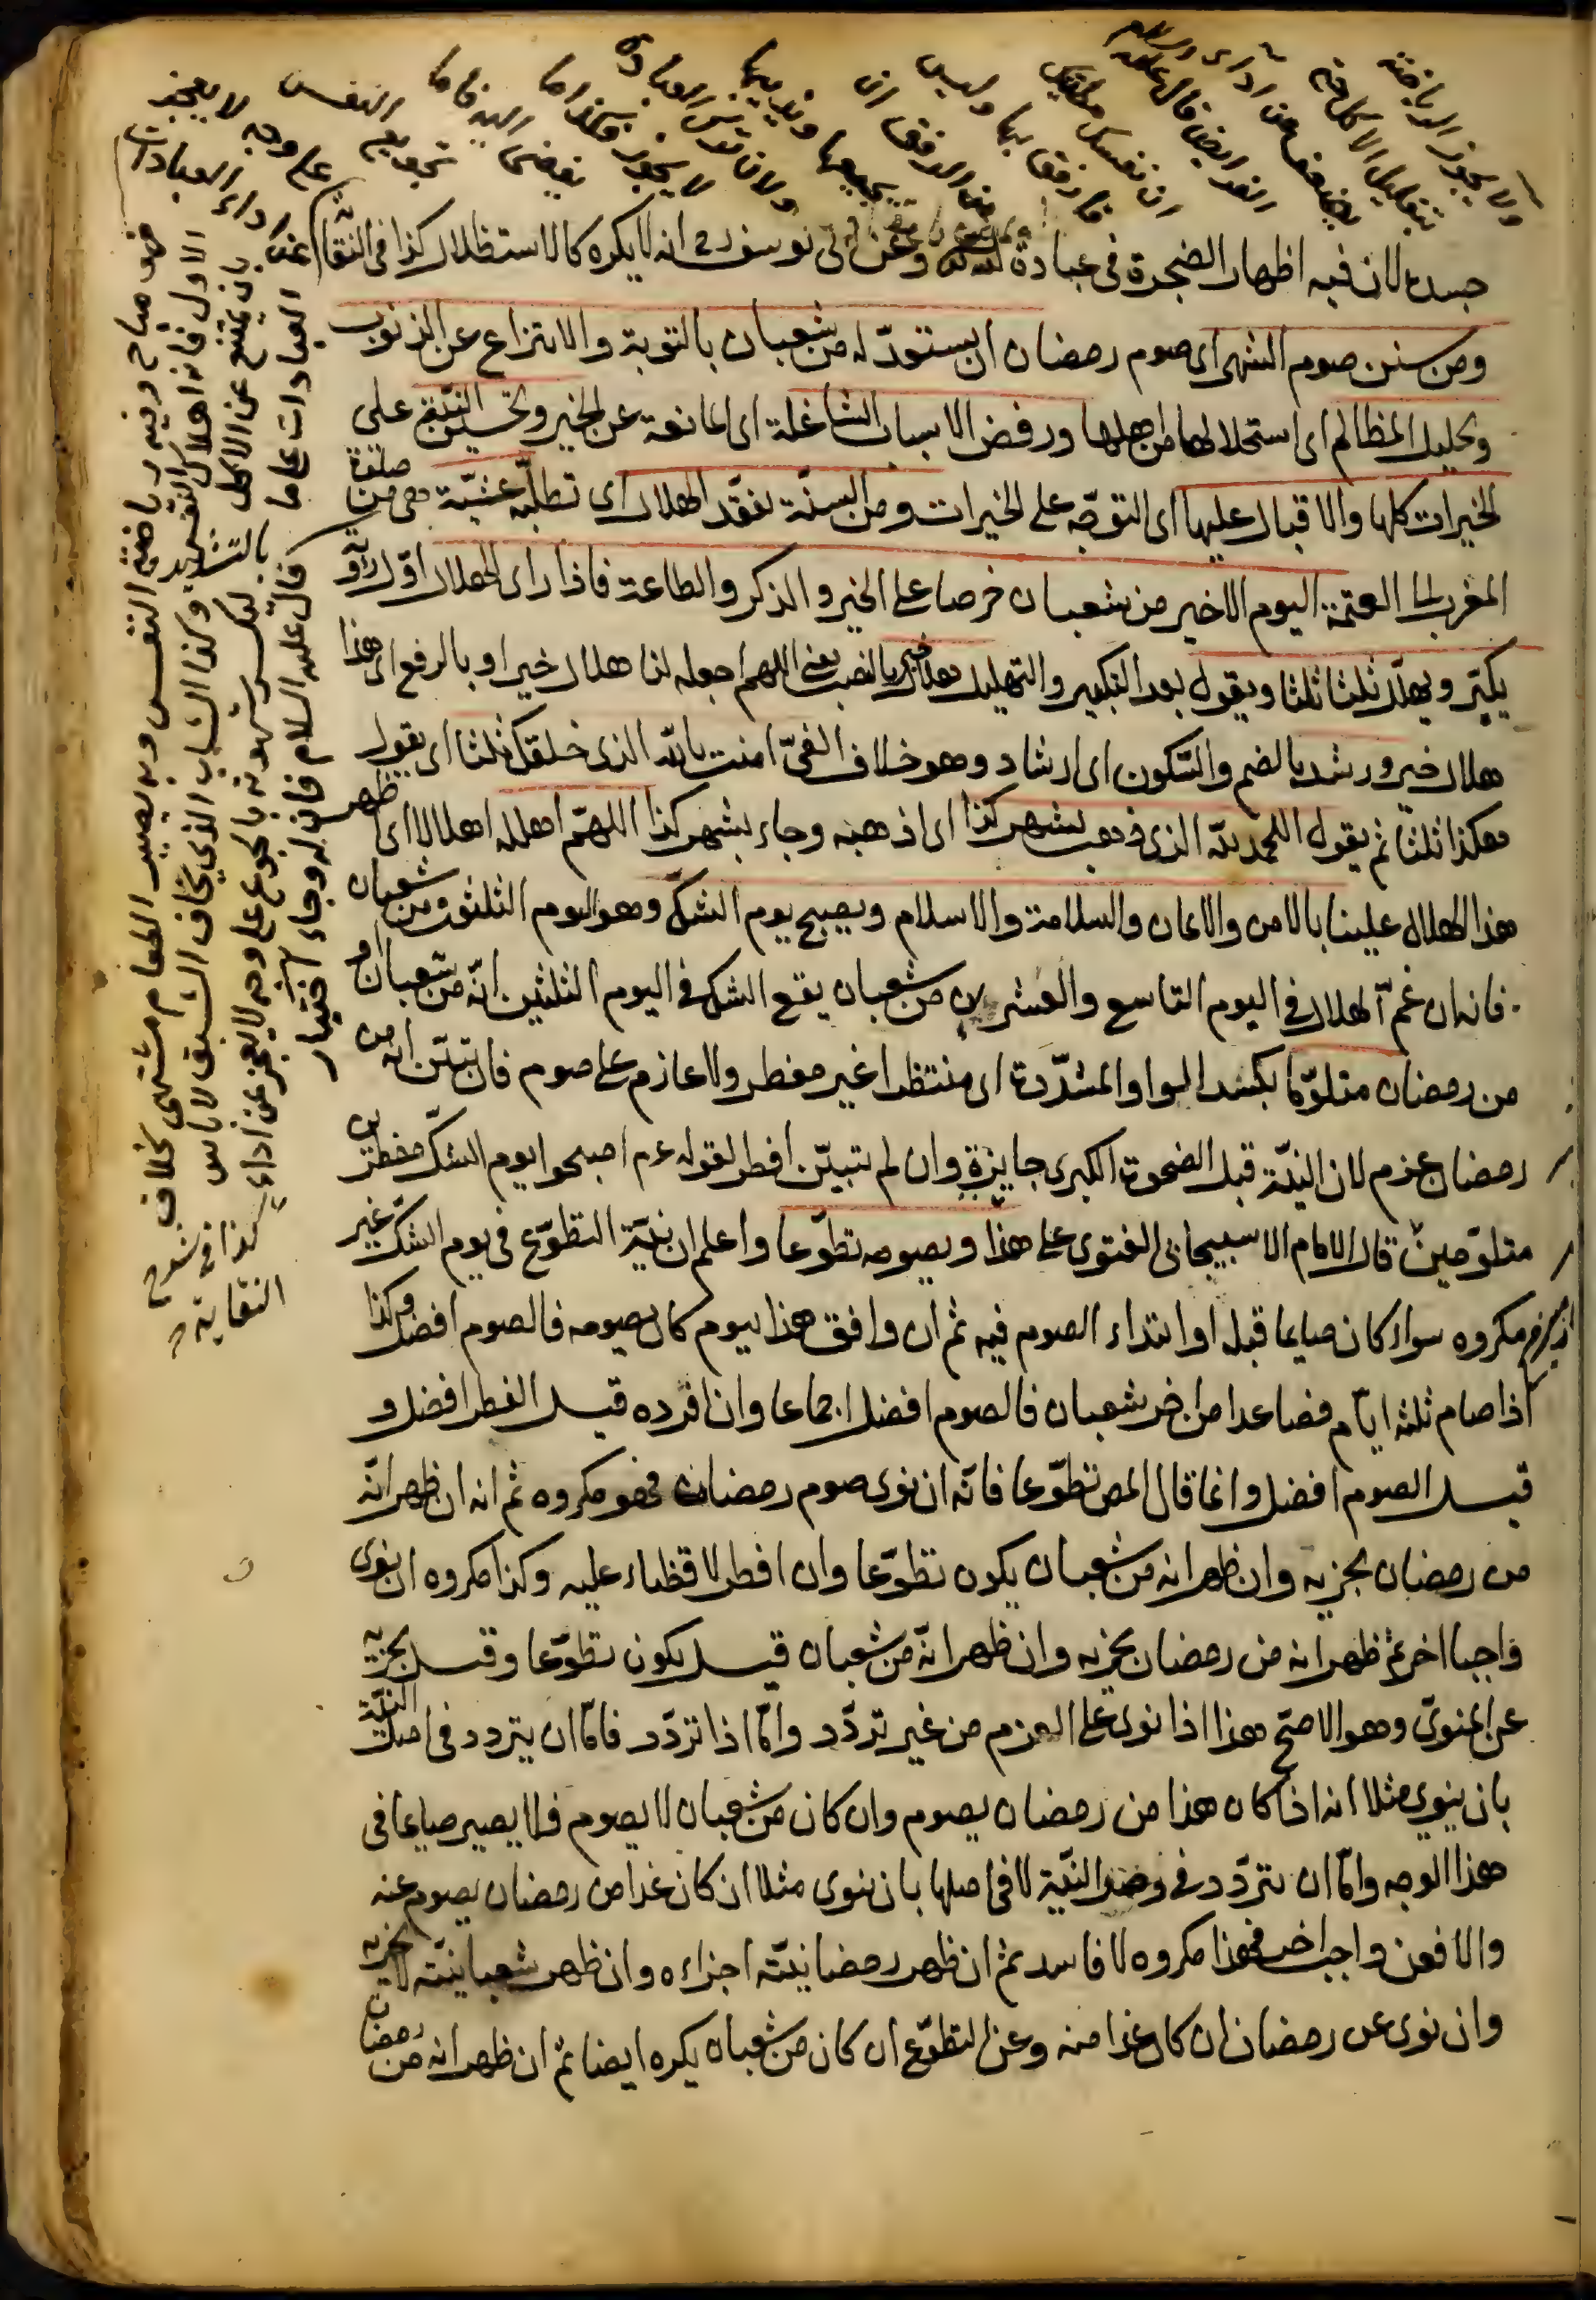 ولا يجوز الرياضة
بتقليل الاكل حتى
يضعف عن اداء
ان نفسك مطيتك
فارفق بها وليس
من الرفق ان
يجيعها ويذيبها
ولان ترك العبادة
لا يجوز فكذا ما
يفضى اليه فاما
تجويع النفس
على وجه لا يعجز
عن اداء العبادات
فهو مباح وفيه رياضة النفس وبه يصير الطعام مشتهى بخلاف
الاول فانه اهلاك النفس وكذا الشاب الذى يخاف الشبق لا باس
بان يمتنع عن الاكل ليكسر شهوته بالجوع على وجه لا يعجز عن اداء
العبادات على ما قال عليه السلام فانه له وجاء اختيار
كذا فى شرح
النقاية
جسده لان فيه اظهار الضجرة فى عبادة الله وعن ابى يوسف رح انه لا يكره كالاستظلال كذا فى النقاية
ومن سنن صوم الشهر اى صوم رمضان ان يستعدّ له من شعبان بالتوبة والانتزاع عن الذنوب
وتحليل المظالم اى استحلالها من اهلها ورفض الاسباب الشاغلة اى المانعة عن الخير وتحسين النيّة على
الخيرات كلها والاقبال عليها اى التوجّه على الخيرات ومن السنّة تفقّد الهلال اى تطلّبه عشيّة هى من صلوة
المغرب الى العتمة اليوم الاخير من شعبان حرصا على الخير والذكر والطاعة فاذا راى الهلال اوّل رؤية
يكبّر ويهلّل ثلثا ثلثا ويقول بعد التكبير والتهليل هلال خير بالنصب يعنى اللهم اجعله لنا هلال خير او بالرفع اى هذا
هلال خير ورشد بالضم والسّكون اى ارشاد وهو خلاف الغىّ امنت بالله الذى خلقك ثلثا اى يقول
هكذا ثلثا ثم يقول الحمد لله الذى ذهب بشهر كذا اى اذهبه وجاء بشهر كذا اللهمّ اهلله اهلالا اى اظهر
هذا الهلال علينا بالامن والايمان والسلامة والاسلام ويصبح يوم الشكّ وهو اليوم الثلثون من شعبان
فانه ان غمّ الهلال فى اليوم التاسع والعشرين من شعبان يقع الشك فى اليوم الثلثين انّه من شعبان او
من رمضان متلوّما بكسر الواو المشدّدة اى منتظرا غير مفطر ولا عازم على صوم فان تبيّن انه من
رمضان عزم لان النيّة قبل الضحوة الكبرى جايزة وان لم يتبيّن افطر لقوله عم اصبحوا يوم الشكّ مفطرين
متلوّمين قال الامام الاسبيجابى الفتوى على هذا ويصومه تطوّعا واعلم ان نيّة التطوّع فى يوم الشكّ غير
مكروه سواء كان صايما قبل او ابتداء الصوم فيه ثم ان وافق هذا ليوم كان يصومه فالصوم افضل وكذا
اذا صام ثلثه ايّام فصاعدا من اخر شعبان فالصوم افضل اجماعا وان افرده قيل الفطر افضل و
قيل الصوم افضل وانما قال المص تطوّعا فانّه ان نوى صوم رمضان فهو مكروه ثم انه ان ظهر انّه
من رمضان يجزيه وان ظهر انه من شعبان يكون تطوّعا وان افطر لا قضاء عليه وكذا مكروه ان نوى
واجبا اخر ثم ظهر انه من رمضان يجزيه وان ظهر انّه من شعبان قيل يكون تطوّعا وقيل يجزيه
عن المنوىّ وهو الاصحّ هذا اذا نوى على العزم من غير تردّد وامّا اذا تردّد فامّا ان يتردد فى اصل النيّة
بان ينوى مثلا انه اذا كان هذا من رمضان يصوم وان كان من شعبان لا يصوم فلا يصير صايما فى
هذا الوجه وامّا ان يتردّد فى وصف النيّة لا فى اصلها بان ينوى مثلا ان كان غدا من رمضان يصوم عنه
والا فعن واجب اخر فهذا مكروه لا فاسد ثم ان ظهر رمضانيّته اجزاءه وان ظهر شعبانيّته لا يجزيه
وان نوى عن رمضان ان كان غدا منه وعن التطوّع ان كان من شعبان يكره ايضا ثم ان ظهر انه من رمضان